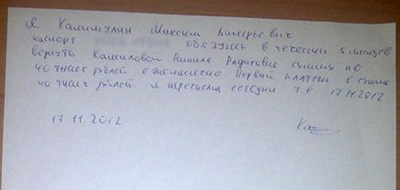 Я Калимулин Максим Валерьевич
паспорт обязуюсь в течении 5 месяцев
вернуть Камиловой Рамиле Радиковне сумму по
40 тысяч рублей ежемесячно Первый платеж в сумме
40 тысяч рублей я перечислил сегодня т.е. 17.11.2012
17.11.2012